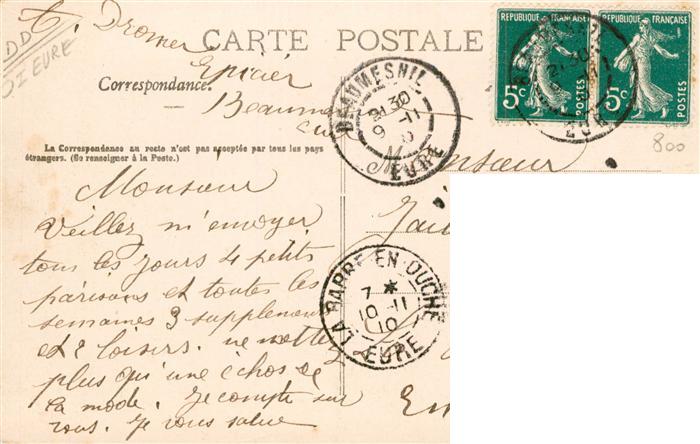 DD
OI EURE
CARTE POSTALE
T. Dromer
Epicier
Beaumesnil
Correspondance.
La Correspondance au recto n'est pas acceptée par tous les pays
étrangers. (Se renseigner à la Poste.)
Monsieur
Veillez m'envoyer
tous les jours 4 petits
parisiens et toutes les
semaines 3 supplement
et 2 loisirs. ne mettez
plus qu'une échos de
la mode. Je compte sur
vous. Je vous salue
REPUBLIQUE FRANÇAISE
5c
POSTES
REPUBLIQUE FRANÇAISE
5c
POSTES
BEAUMESNIL
21 30
9 -11
EURE
21 30
EURE
800
Monsieur
LA BARRE-EN-OUCHE
7 *
10 -11
10
EURE